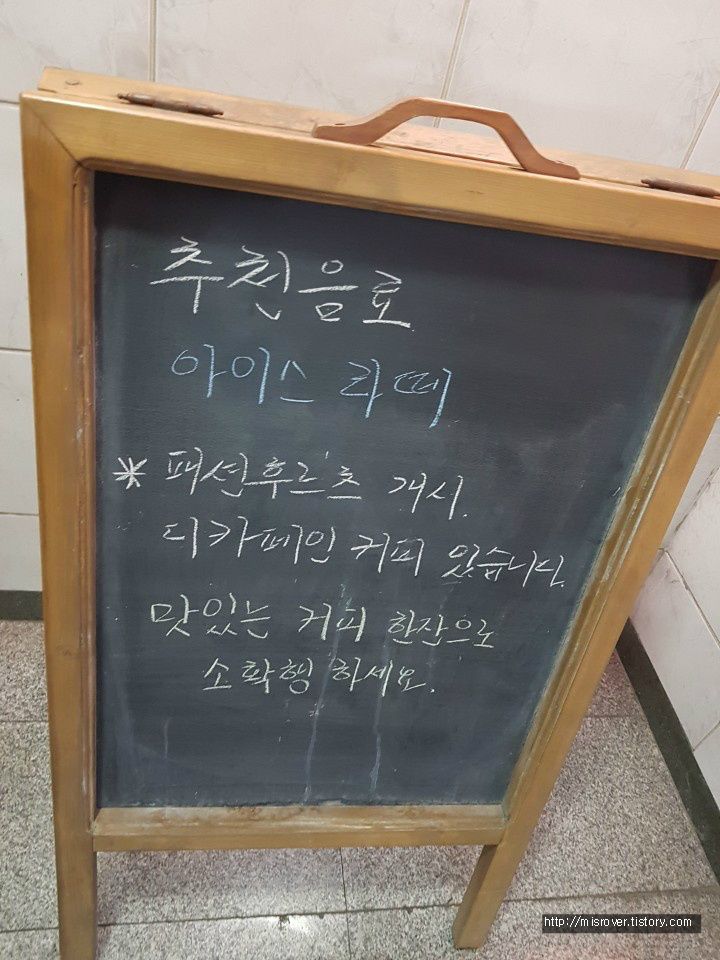 추천음료
아이스 라떼
* 패션후르츠 개시.
디카페인 커피 있습니다.
맛있는 커피 한잔으로
소확행 하세요.
http://misrover.tistory.com